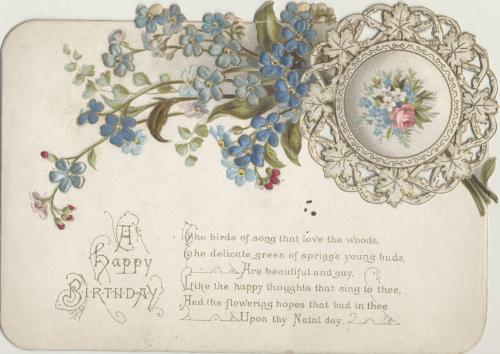 A
Happy
Birthday
The birds of song that love the woods,
The delicate green of spring's young buds,
Are beautiful and gay.
Like the happy thoughts that sing to thee,
And the flowering hopes that bud in thee
Upon thy Natal day.